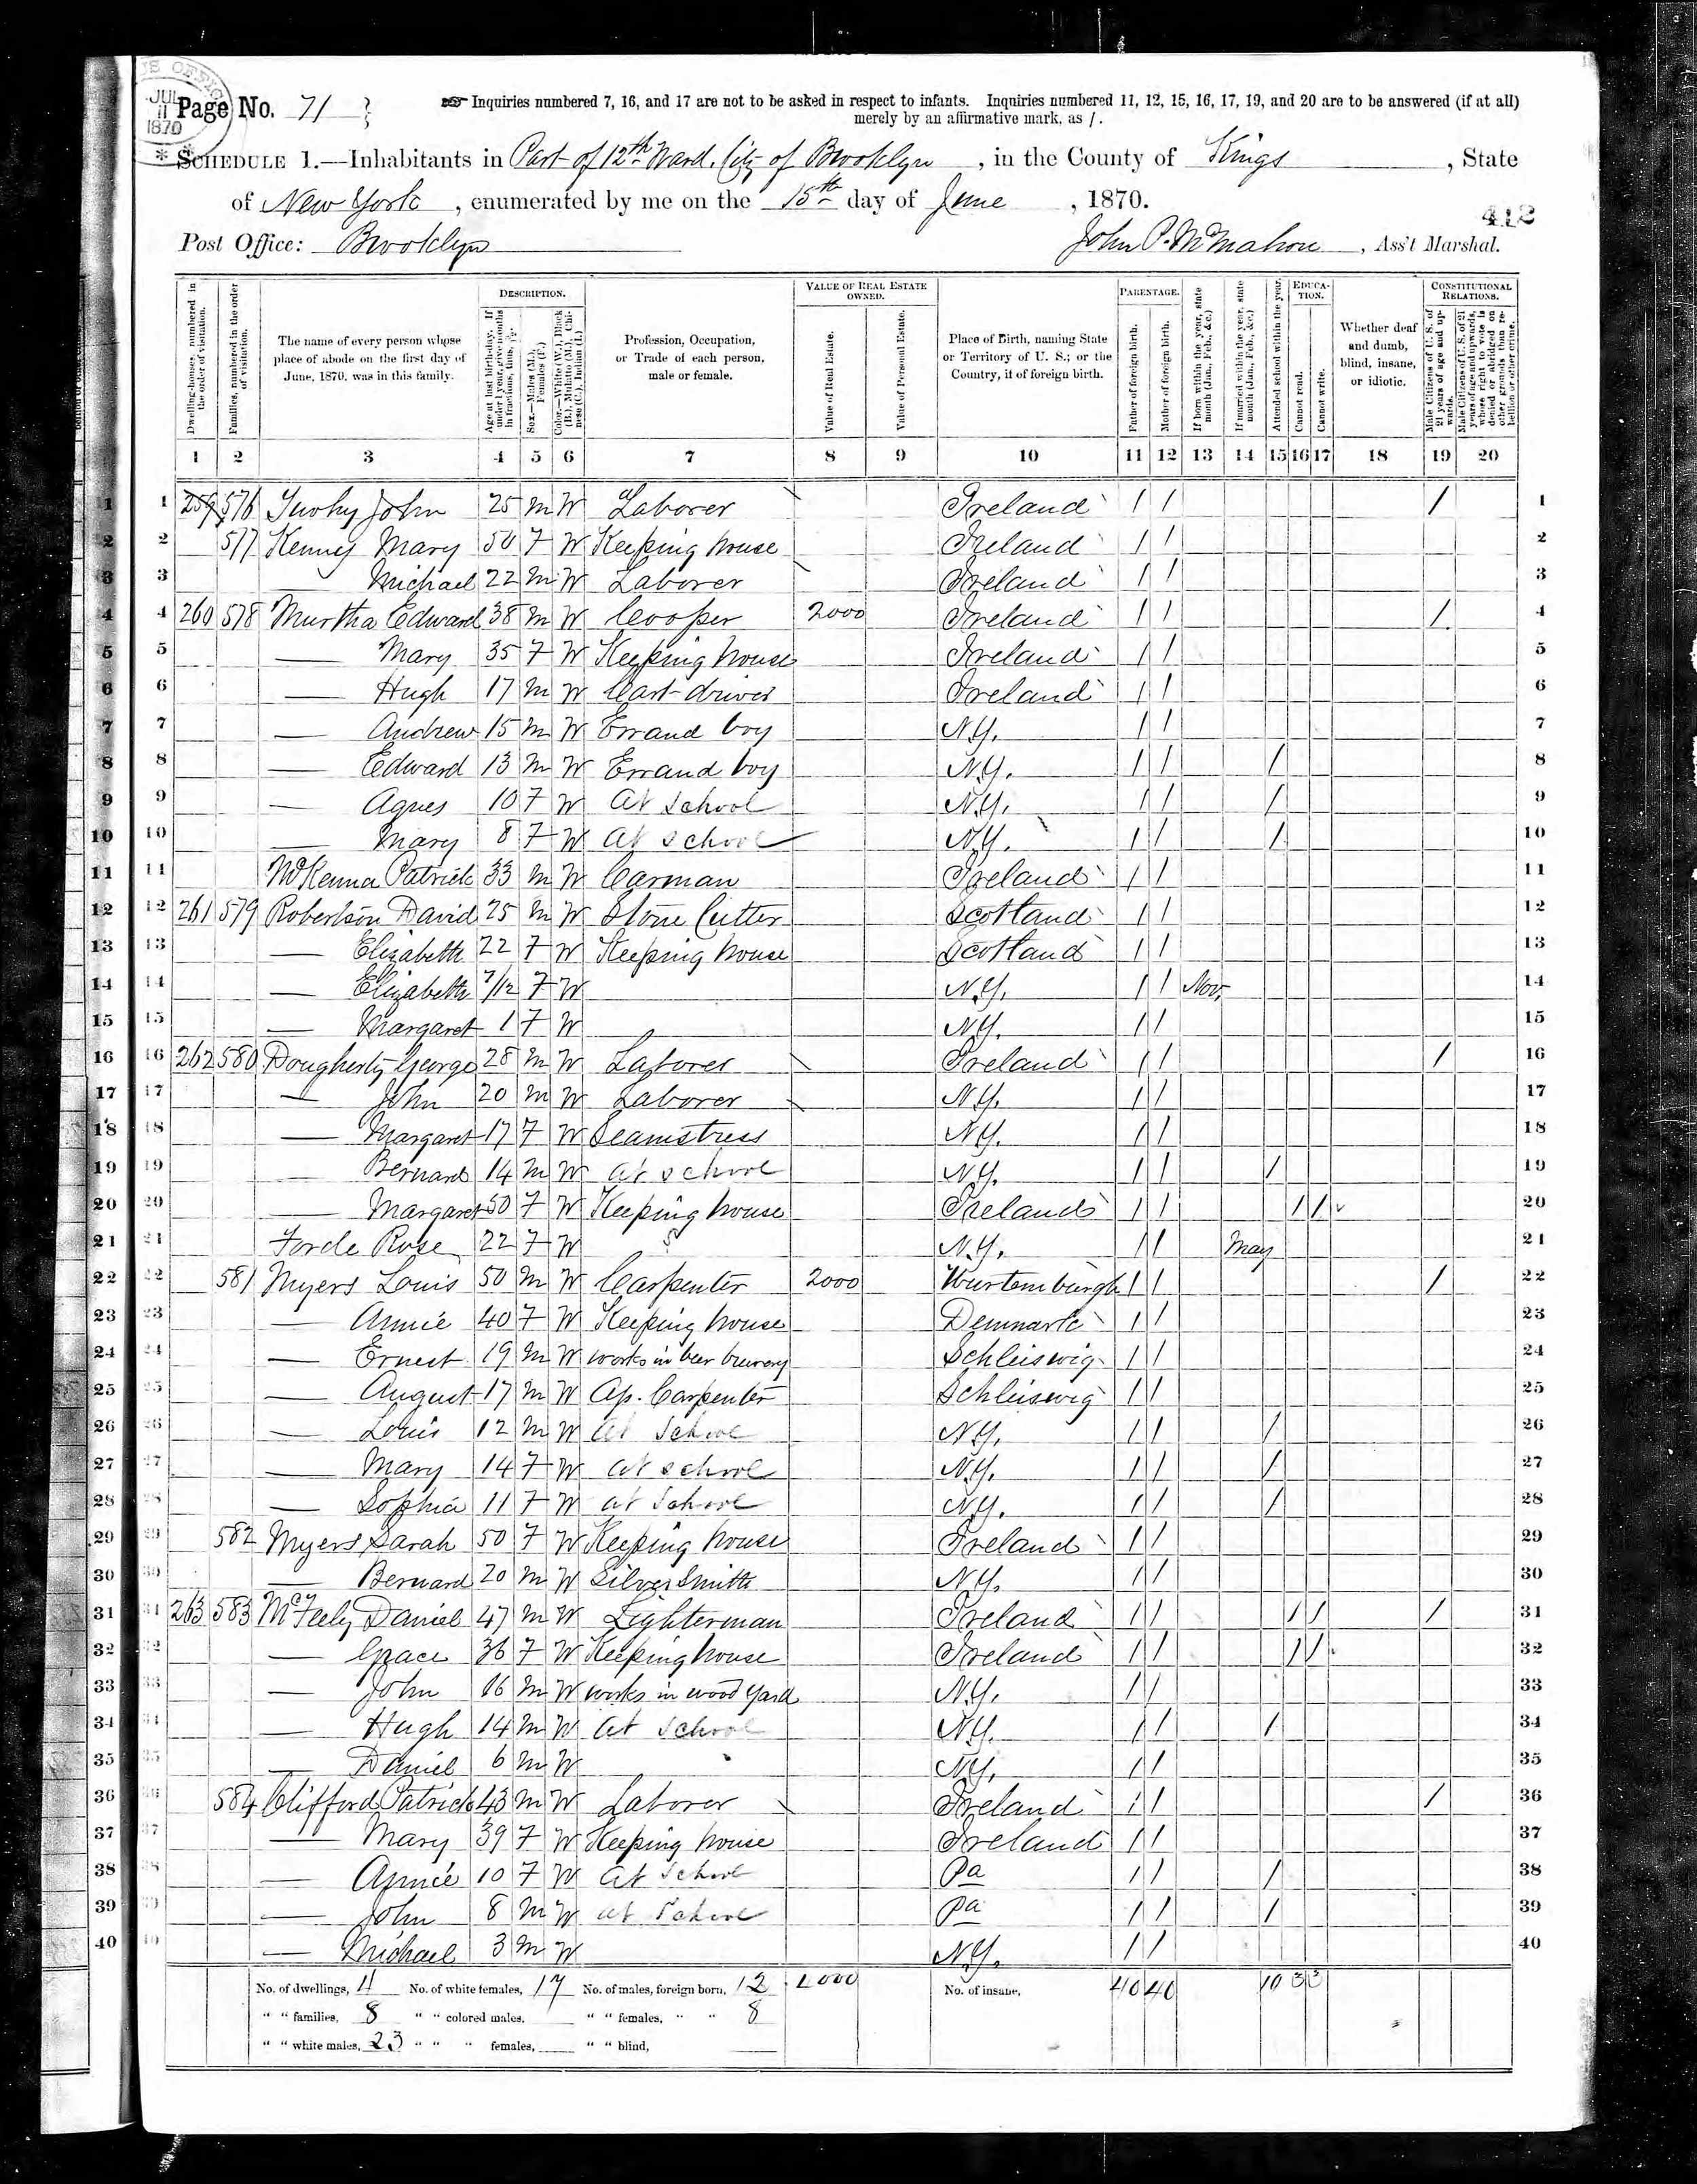 JUL
11
1870
Page No. 71
Inquiries numbered 7, 16, and 17 are not to be asked in respect to infants. Inquiries numbered 11, 12, 15, 16, 17, 19, and 20 are to be answered (if at all)
merely by an affirmative mark, as /.
SCHEDULE 1.—Inhabitants in Part of 12th Ward. City of Brooklyn, in the County of Kings, State
of New York, enumerated by me on the 15th day of June, 1870.
412
Post Office: Brooklyn John P. McMahon, Ass't Marshal.
DESCRIPTION. VALUE OF REAL ESTATE OWNED. PARENTAGE. EDUCATION. CONSTITUTIONAL RELATIONS.
Dwelling-houses, numbered in the order of visitation. Families, numbered in the order of visitation. The name of every person whose place of abode on the first day of June, 1870, was in this family. Age at last birth-day. If under 1 year, give months in fractions, thus, Sex.—Males (M.), Females (F.) Color.—White (W.), Black (B.), Mulatto (M.), Chinese (C.), Indian (I.) Profession, Occupation, or Trade of each person, male or female. Value of Real Estate. Value of Personal Estate. Place of Birth, naming State or Territory of U. S.; or the Country, if of foreign birth. Father of foreign birth. Mother of foreign birth. If born within the year, state month (Jan., Feb., &c.) If married within the year, state month (Jan., Feb., &c.) Attended school within the year. Cannot read. Cannot write. Whether deaf and dumb, blind, insane, or idiotic. Male Citizens of U. S. of 21 years of age and upwards. Male Citizens of U. S. of 21 years of age and upwards, whose right to vote is denied or abridged on other grounds than rebellion or other crime.
1 2 3 4 5 6 7 8 9 10 11 12 13 14 15 16 17 18 19 20
1 1 259 576 John 25 M W Laborer Ireland / / / 1
2 2 577 Kenney Mary 50 F W Keeping house Ireland / / 2
3 3 Michael 22 M W Laborer Ireland / / 3
4 4 260 578 Murtha Edward 38 M W Cooper 2000 Ireland / / / 4
5 5 — Mary 35 F W Keeping house Ireland / / 5
6 6 — Hugh 17 M W Cart-driver Ireland / / 6
7 7 — Andrew 15 M W Errand boy N.Y. / / 7
8 8 — Edward 13 M W Errand boy N.Y. / / / 8
9 9 — Agnes 10 F W At School N.Y. / / / 9
10 10 — Mary 8 F W at school N.Y. / / / 10
11 11 McKenna Patrick 33 M W Carman Ireland / / 11
12 12 261 579 Robertson David 25 M W Stone Cutter Scotland / / 12
13 13 — Elizabeth 22 F W Keeping house Scotland / / 13
14 14 — Elizabeth 7/12 F W N.Y. / / Nov. 14
15 15 — Margaret 1 F W N.Y. / / 15
16 16 262 580 Dougherty George 28 M W Laborer Ireland / / / 16
17 17 — John 20 M W Laborer N.Y. / / 17
18 18 — Margaret 17 F W Seamstress N.Y. / / 18
19 19 — Bernard 14 M W at school N.Y. / / / 19
20 20 — Margaret 50 F W Keeping house Ireland / / / / 20
21 21 Forde Rose 22 F W N.Y. / / May 21
22 22 581 Myers Louis 50 M W Carpenter 2000 Wurtemburgh / / / 22
23 23 — Annie 40 F W Keeping house Denmark / / 23
24 24 — Ernest 19 M W works in beer brewery Schleiswig / / 24
25 25 — August 17 M W Ap. Carpenter Schleiswig / / 25
26 26 — Louis 12 M W At School N.Y. / / / 26
27 27 — Mary 14 F W at school N.Y. / / / 27
28 28 — Sophia 11 F W at School N.Y. / / / 28
29 29 582 Myers Sarah 50 F W Keeping house Ireland / / 29
30 30 — Bernard 20 M W Silver Smith N.Y. / / 30
31 31 263 583 McFeely Daniel 47 M W Lighterman Ireland / / / / / 31
32 32 — Grace 36 F W Keeping house Ireland / / / / 32
33 33 — John 16 M W works in wood yard N.Y. / / 33
34 34 — Hugh 14 M W At School N.Y. / / / 34
35 35 — Daniel 6 M W N.Y. / / 35
36 36 584 Clifford Patrick 43 M W Laborer Ireland / / / 36
37 37 — Mary 39 F W Keeping house Ireland / / 37
38 38 — Annie 10 F W At School Pa / / / 38
39 39 — John 8 M W at School Pa / / / 39
40 40 — Michael 3 M W N.Y. / / 40
No. of dwellings, 4 No. of white females, 17 No. of males, foreign born, 12 No. of insane, 40 40 10 3 3
" " families, 8 " " colored males, " " females, " " 8
" " white males, 23 " " " females, " " blind,